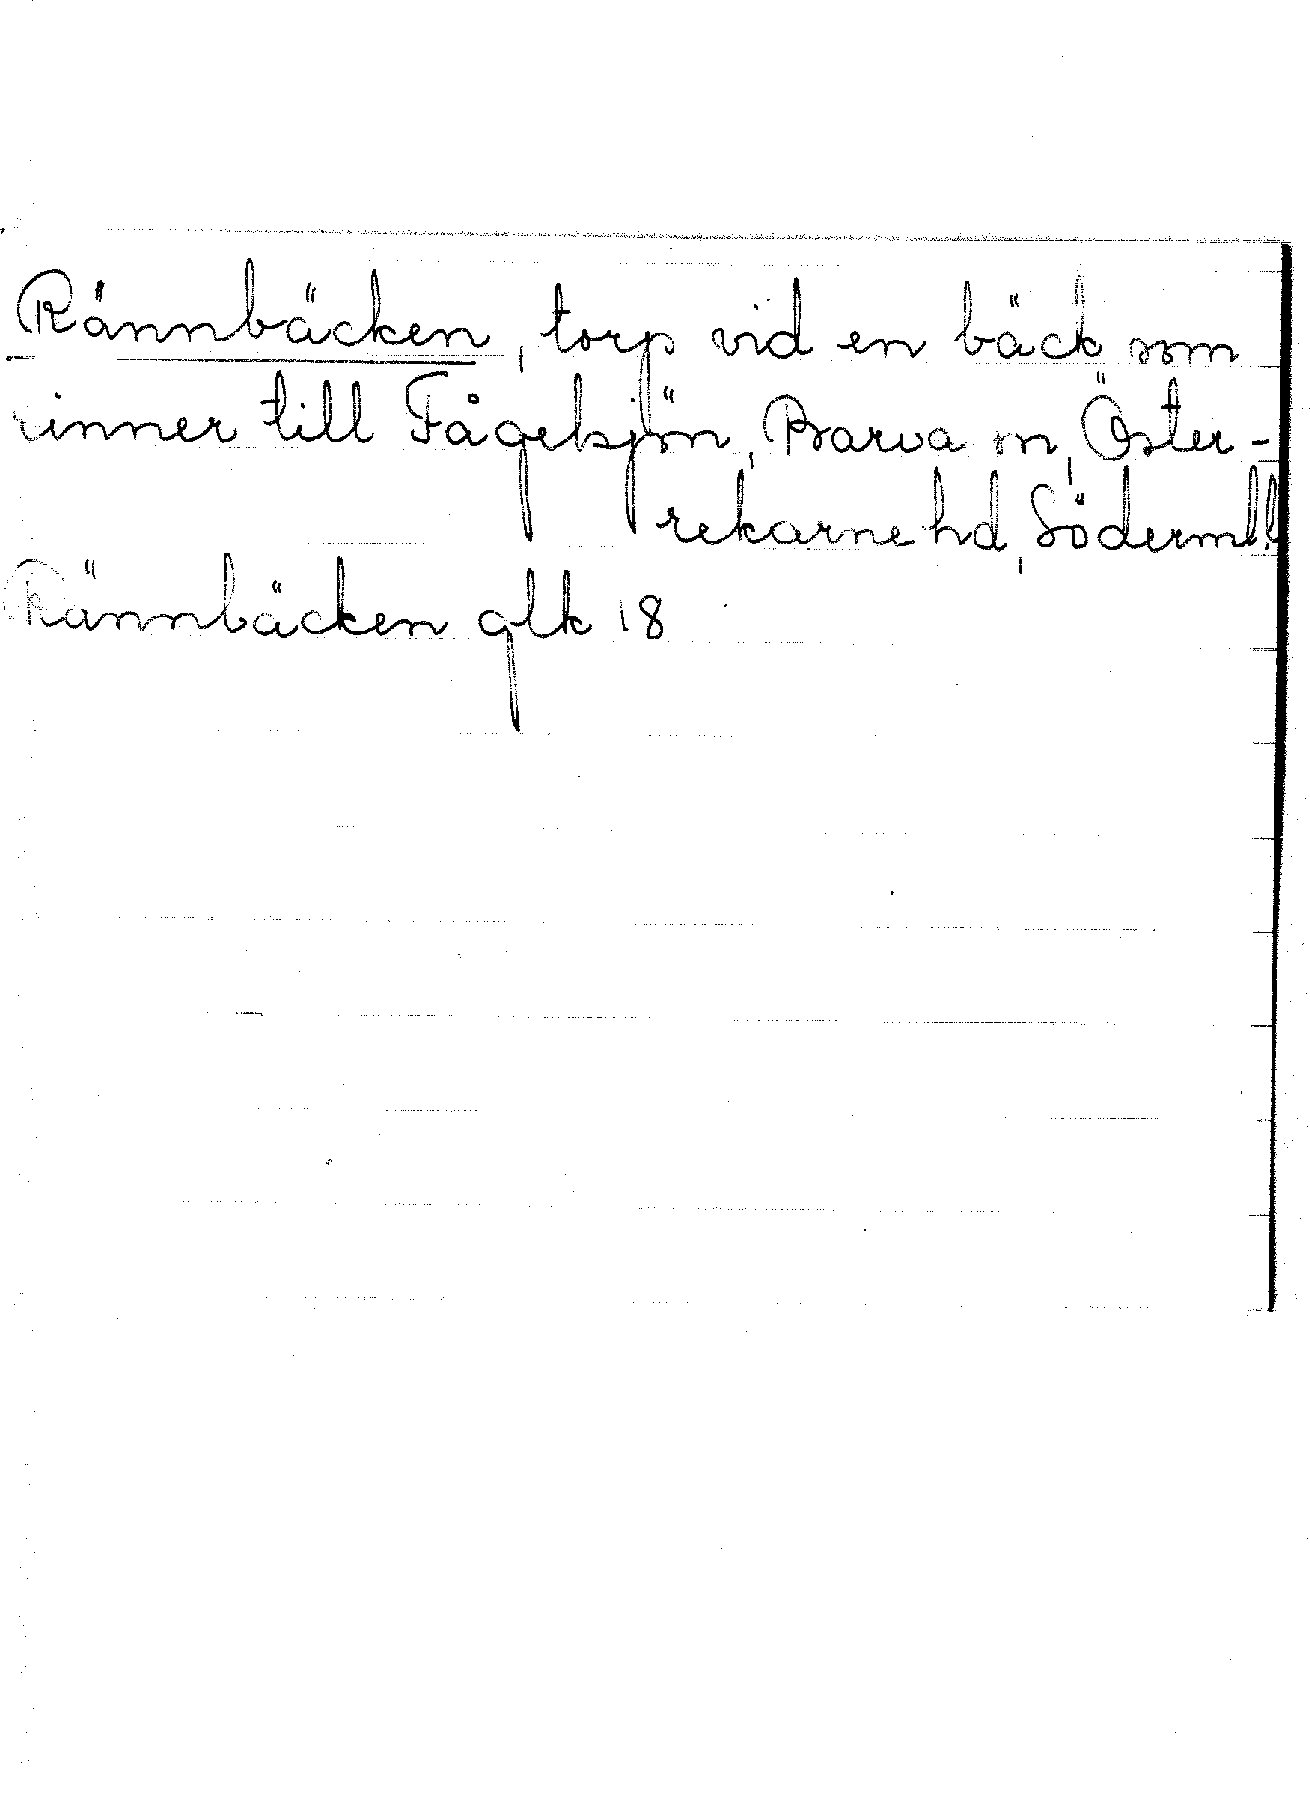 Rännbäcken, torp vid en bäck som
rinner till Fågelsjön, Barva sn, Öster-
rekarne hd, Söderml.
Rännbäcken glk 18